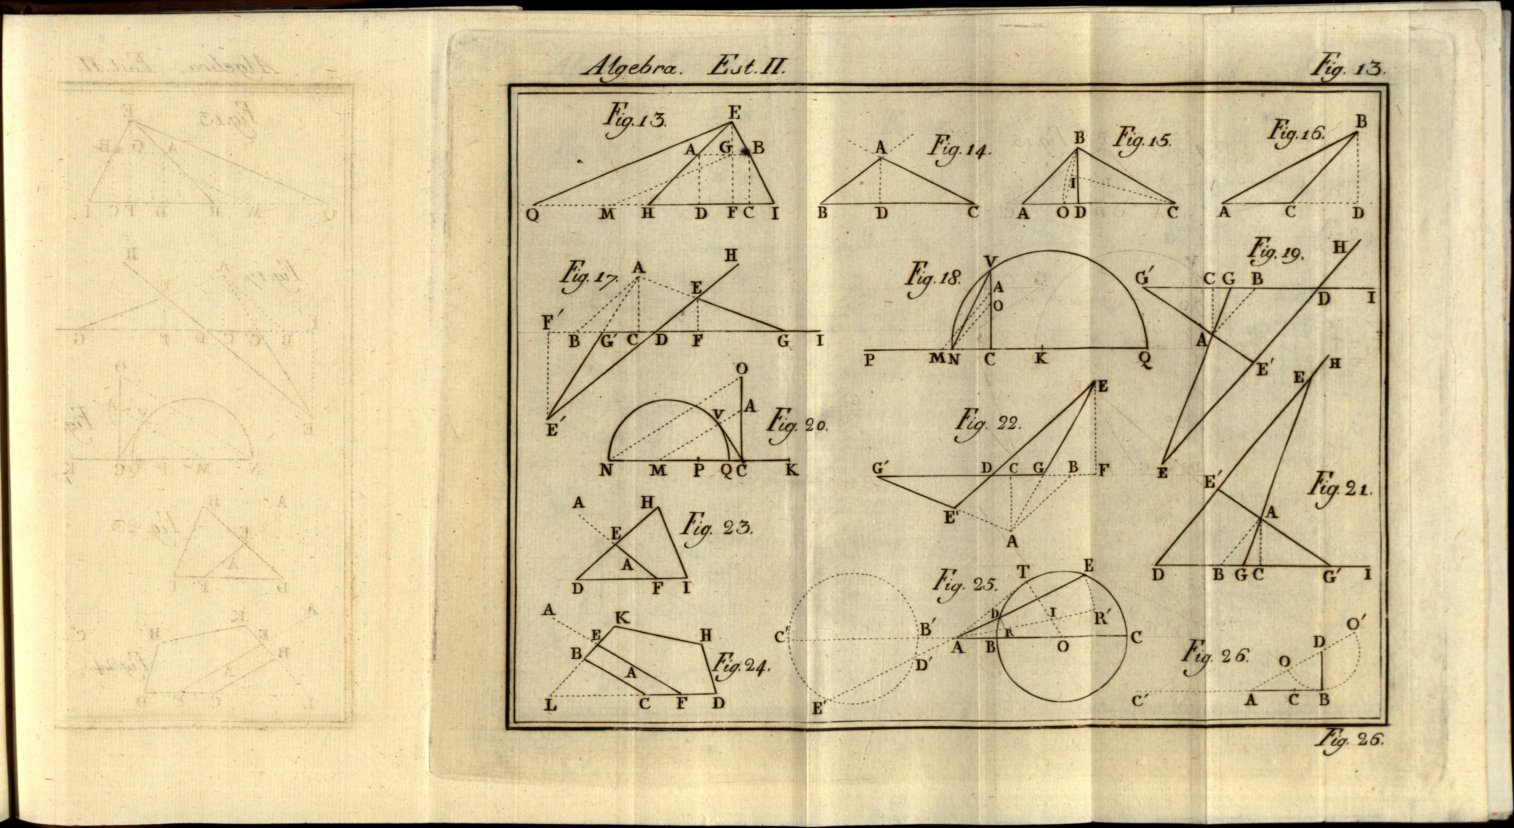 Algebra. Est. II. Fig. 13.
Fig. 13. E A G B Q M H D F C I
Fig. 14. A B D C
Fig. 15. B I A O D C
Fig. 16. B A C D
Fig. 17. H A E F' B G' C D F G I E'
Fig. 18. V A O P M N C K Q
Fig. 19. H G' C G B D I A E' E
Fig. 20. O V A N M P Q C K
Fig. 22. E G' D C G B F E' A
Fig. 21. H E E' A D B G C G' I
Fig. 23. A H E A D F I
Fig. 24. A K E H B A L C F D
Fig. 25. T E D I R' R C' B' A B O C D' E'
Fig. 26. O' D O C' A C B
Fig. 26.